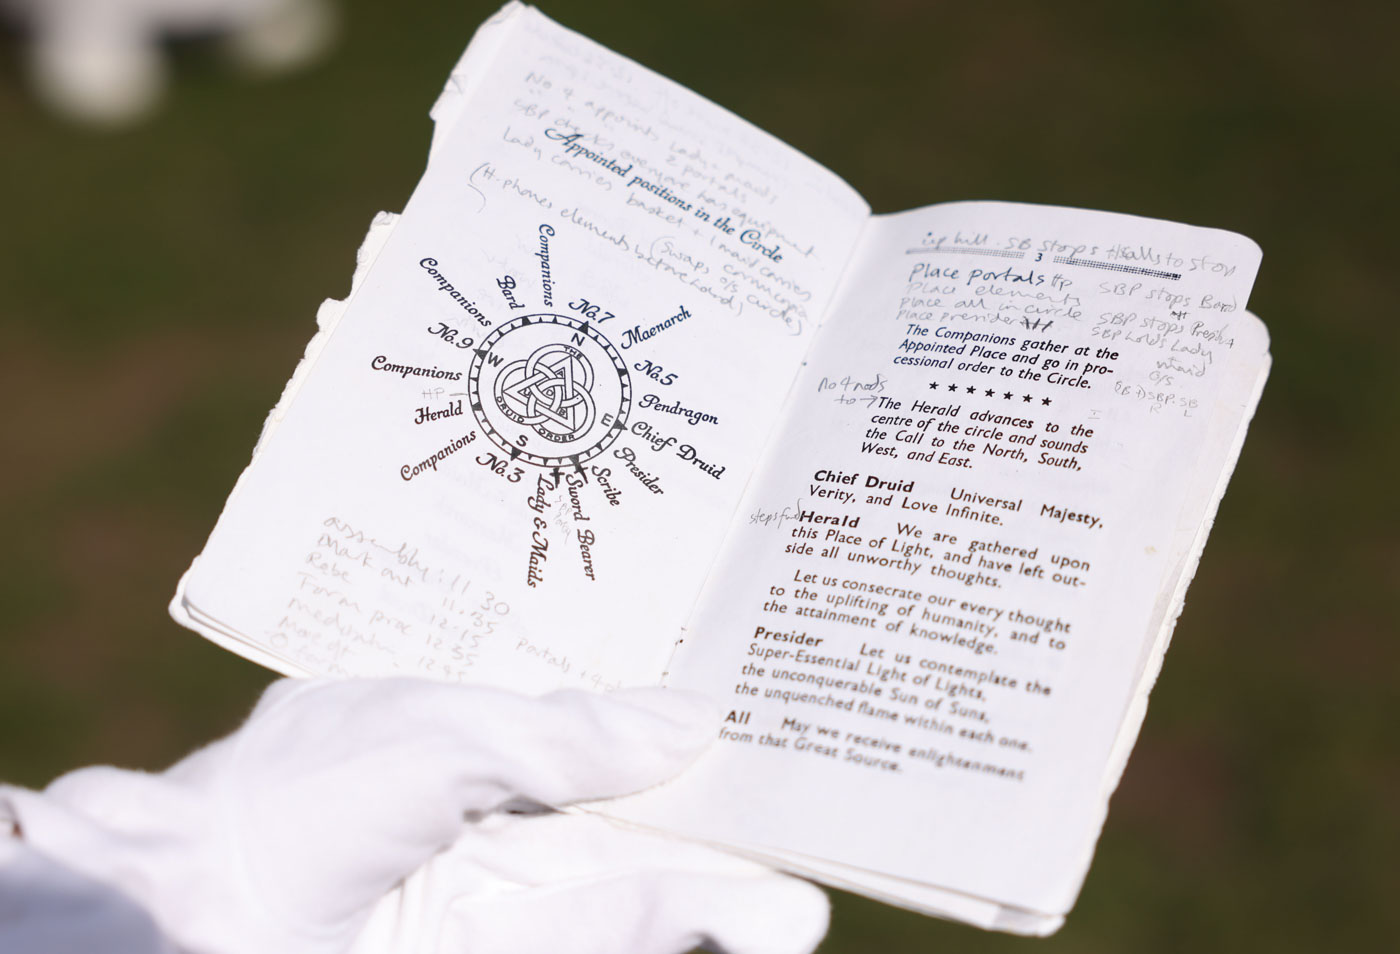 No 4 appoints Lady + maids
2 portals
SBP checks everyone has equipment
Lady carries basket + 1 maid carries
(H. phones elements before Lady)
(Swaps cornucopia
o/s circle)
Appointed positions in the Circle
Companions
Bard
No. 7
Maenarch
No. 5
Pendragon
Chief Druid
Presider
Scribe
Sword Bearer
Lady & Maids
No. 3
Companions
Herald
HP
Companions
No. 9
Companions
N
E
S
W
THE
DRUID ORDER
assembly: 11 30
Mark out 11.55
Robe 12.15
Form proc 12 35
Portals +
up hill. SB stops Halls to stop
3
Place portals Hp
Place elements
Place all in circle
Place presider
SBP stops Bard
SBP stops Presid
SBP holds Lady
maid
o/s
The Companions gather at the
Appointed Place and go in pro-
cessional order to the Circle.
★ ★ ★ ★ ★ ★ ★
no 4 nods
to →
The Herald advances to the
centre of the circle and sounds
the Call to the North, South,
West, and East.
Chief Druid Universal Majesty,
Verity, and Love Infinite.
steps fwd
Herald We are gathered upon
this Place of Light, and have left out-
side all unworthy thoughts.
Let us consecrate our every thought
to the uplifting of humanity, and to
the attainment of knowledge.
Presider Let us contemplate the
Super-Essential Light of Lights,
the unconquerable Sun of Suns,
the unquenched flame within each one.
All May we receive enlightenment
from that Great Source.